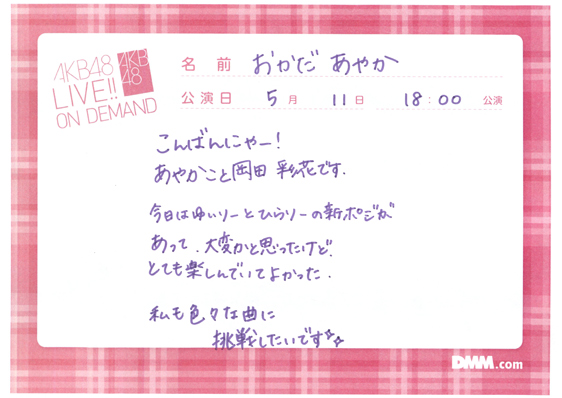 AKB48
LIVE!!
ON DEMAND
AKB
48
名前 おかだ あやか
公演日 5月 11日 18:00 公演
こんばんにゃー!
あやかこと岡田 彩花です.
今日はゆいりーとひらりーの新ポジが
あって、大変かと思ったけど、
とても楽しんでいてよかった.
私も色々な曲に
挑戦したいです☆☆
DMM.com